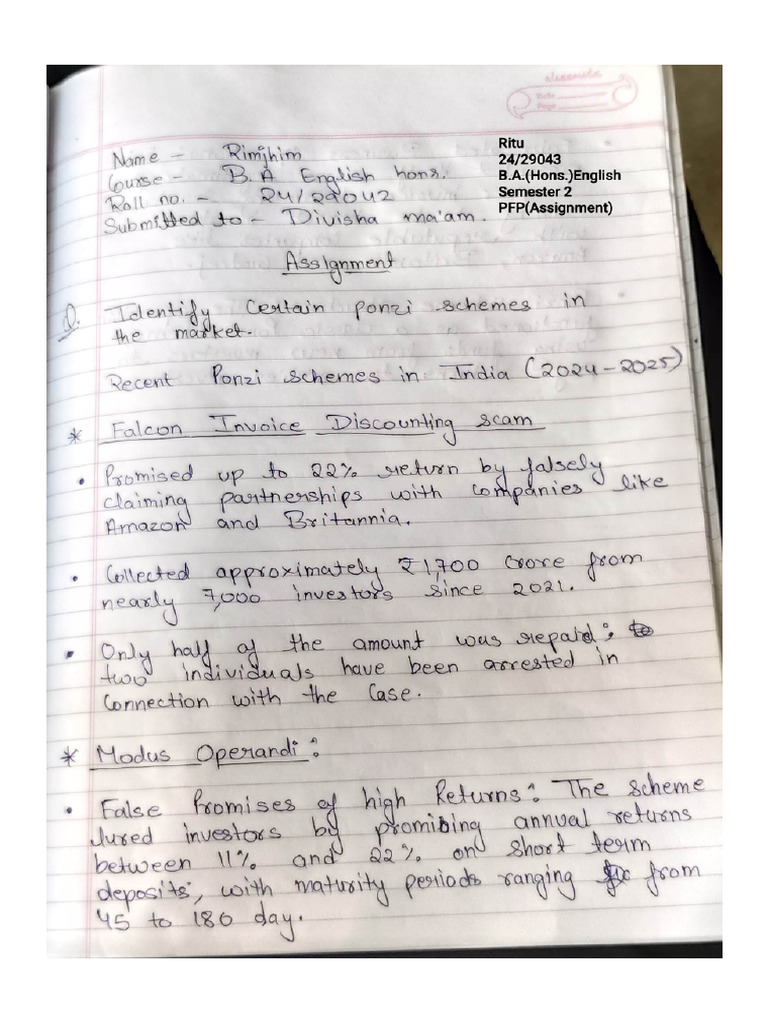 Name - Rimjhim
Course - B.A English hons.
Roll no. - 24/29042
Submitted to - Divisha ma'am.
Ritu
24/29043
B.A.(Hons.)English
Semester 2
PFP(Assignment)
Date
Page
Assignment
Q. Identify certain ponzi schemes in
the market.
Recent Ponzi schemes in India (2024-2025)
* Falcon Invoice Discounting scam
• Promised up to 22% return by falsely
claiming partnerships with companies like
Amazon and Britannia.
• Collected approximately ₹1,700 crore from
nearly 7,000 investors since 2021.
• Only half of the amount was repaid;
two individuals have been arrested in
Connection with the Case.
* Modus Operandi:
• False Promises of high Returns: The scheme
lured investors by promibing annual returns
between 11% and 22% on short term
deposits, with maturity periods ranging from
45 to 180 day.